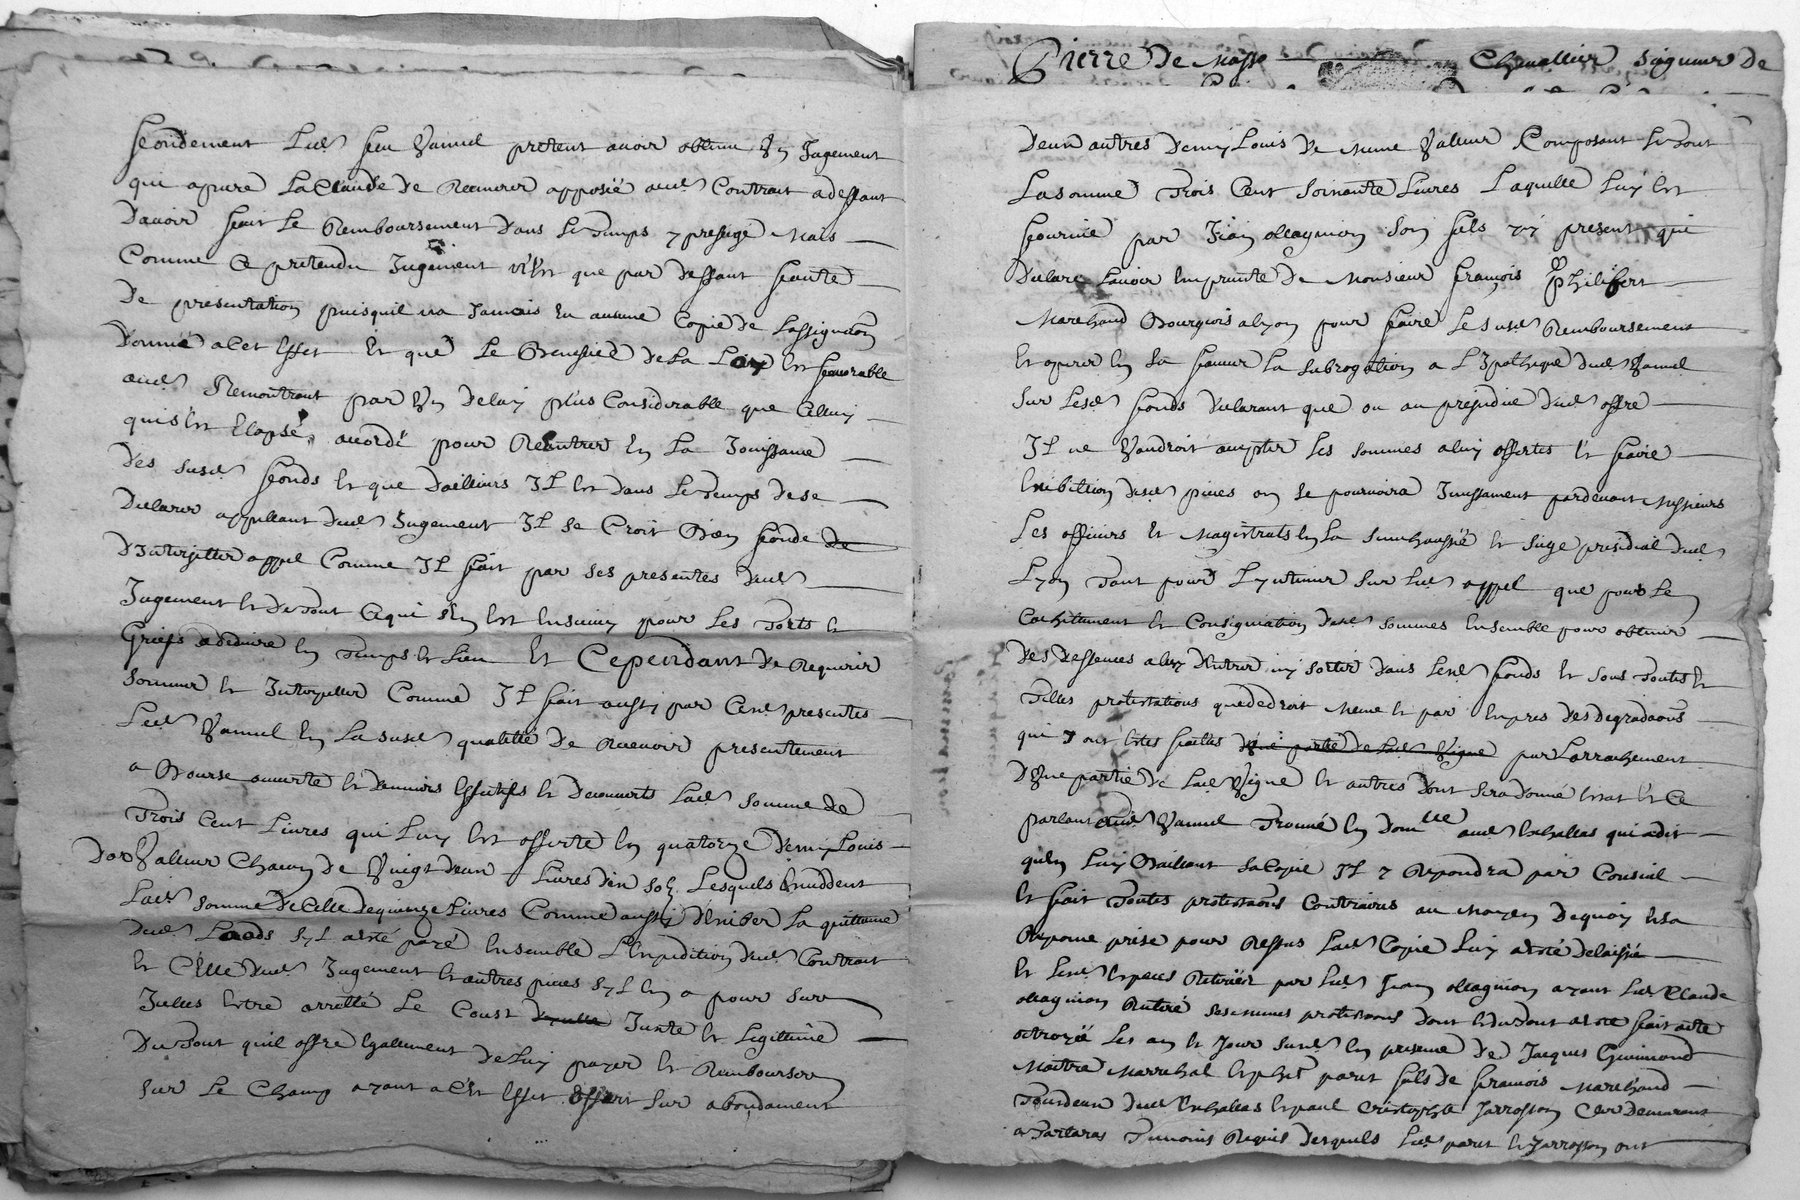 secondement Led. sieu Vamiel pretent avoir obtenu Un Jugement
qui apure La Clause de Reemerer apposée aud. Contrat a deffaut
Davoir fait Le Remboursement Dans Le Temps y presuge Mais
Comme Ce pretendu Jugement n'Est que par deffaut faute
De presentation puisquil na Jamais Eu aucune Copie de Lassignaon
Donnée a Cet Effet Et que Le Benefice de La Loy Est favorable
aud. Remontrant par Un Delay plus Considerable que Celluy
quis Est Elapsé accordé pour Rentrer En La Jouissance
Des susd. fonds Et que D'ailleurs Il Est dans Le Temps de se
Declarer appellant dud. Jugement Il se Croit Bien fondé de
D'Interjetter appel Comme Il fait par ses presentes dud.
Jugement Et De Tout Cequi s'En Est Ensuivy pour Les Torts Et
Griefs a deduire En Temps Et Lieu Et Cependant De Requerir
Sommer Et Interpeller Comme Il fait aussy par Cesd. presentes
Led. Vamiel En La Susd. quallité De Recevoir presentement
a Bourse ouverte Et denniers Effectifs Et Decouverts Lad. somme de
Trois Cent Livres qui Luy Est offerte En quatorze Demy Louis
Dor Valleur Chacun de Vingt deux Livres dix sols Lesquels Excedent
Lad. somme de Celle de quinze Livres Comme aussy d'Exiber La quittance
dud. Laods s'Il a Esté payé Ensemble L'Expedition dud. Contrat
Et Celle dud. Jugement Et autres pieces s'Il En a pour sur
Icelles Estre arretté Le Coust Juste Et Legittime
Du Tout quil offre Egallement de Luy payer Et Rembourser
Sur Le Champ ayant a Cet Effet offert sur abondament
Pierre De Masso Chevallier Seigneur De
Deux autres Demy Louis De Meme Valleur Composant Le Tout
La somme Trois Cent soixante Livres Laquelle Luy Est
fournie par Jean Magnion son fils icy present qui
Declare Lavoir Emprunté De Monsieur François Philibert
Marchand Bourgeois a Lyon pour faire Le susd. Remboursement
Et operer En sa faveur La subrogation a L'Ipotheque dud. Vamiel
Sur Lesd. fonds Declarant que ou au prejudice dud. offre
Il ne Vaudroit accepter Les sommes a Luy offertes Et faire
Exibittion desd. pieces on se pourvoira Incessament pardevant Messieurs
Les officiers Et Magistrats En La Senechaussée Et siege presidial dud.
Lyon Tant pour L'y intimer Sur Led. appel que pour Le
Cachittement Et Consignation desd. sommes Ensemble pour obtenir
Des deffences a Luy d'Entrer ny sortir dans Lesd. fonds Et sous Toutes Et
Telles protestations que de droit Meme Et par Expres Des Degradaons
qui y ont Estes faittes d'une partie de Lad. Vigne par Larrachement
D'Une partie De Lad. Vigne Et autres Dont sera donné Estat Et Ce
parlant aud. Vamiel Trouvé En Domlle aud. Enhallas qui a dit
qu'En Luy Baillant sa Copie Il y Repondra par Conseil
Et fait Toutes protestaons Contraires au Moyen Dequoy Et sa
Reponce prise pour Reffus Lad. Copie Luy a Esté delaissée
Et Lesd. Especes Retirées par Led. Jean Magnion ayant Led. Claude
Magnion Reiteré ses memes protestaons Dont Et du Tout a Esté fait acte
octroyé Les an Et Jour susd. En presence De Jacques Guimond
Maître Marechal Et phet paret fils de François Marchand
Tondeur dud. Enhallas Et paul Cristophle Jarrosson Clerc Demeurant
a Tarraras Temoins Requis Desquels Led. paret Et Jarrosson ont